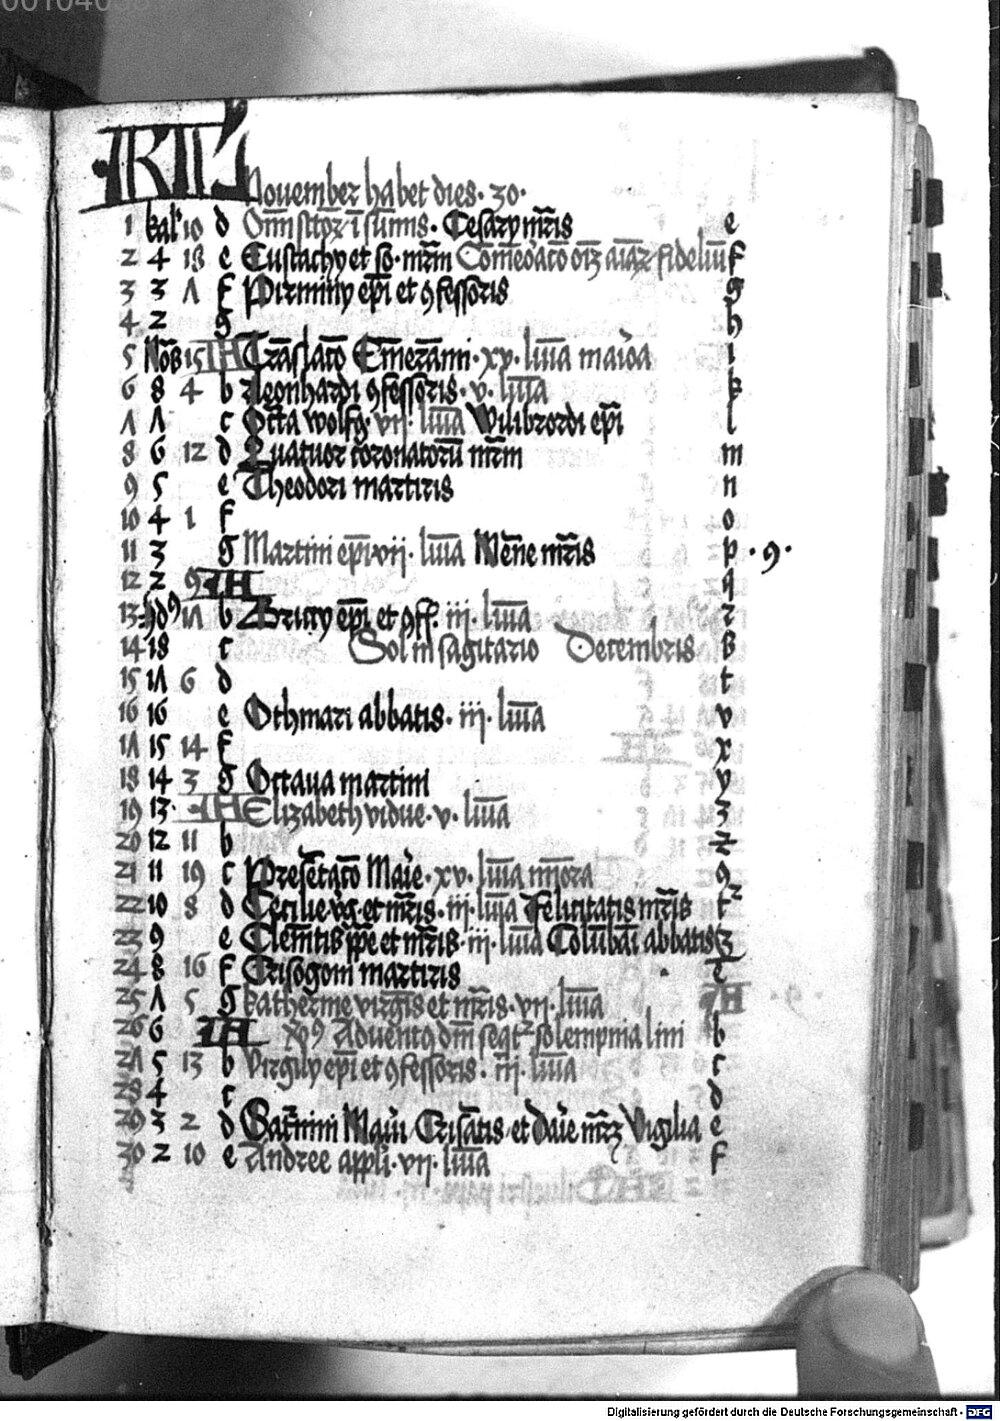 KL
Nouember habet dies · 30 ·
1 kal' 10 d Om̄ sctōꝝ ī sum̄is · Cesarÿ mr̄is e
2 4 18 e Eustachÿ et so · mr̄m Com̄eōacō oīꝫ aīaꝝ fideliū f
3 3 Λ f Pirminÿ ep̄i et ꝯfessoris g
4 2 g h
5 Nōs 15 A Trāslatō Em̄erāmi · xv · lm̄a maioa i
6 8 4 b Leonhardi ꝯfessoris · v · lm̄a k
Λ Λ c Octa wolfg · vij · lm̄a Wilibrordi ep̄i l
8 6 12 d Quatuor coronatorū mr̄m m
9 5 e Theodori martiris n
10 4 1 f o
11 3 g Martini ep̄i vij · lm̄a Men̄e mr̄is p · 9 ·
12 2 9 A q
13 Idꝰ 1Λ b Briccÿ ep̄i et ꝯff · iij · lm̄a r
14 18 c Sol in sagitario Decembris s
15 1Λ 6 d t
16 16 e Othmari abbatis · iij · lm̄a v
1Λ 15 14 f x
18 14 3 g Octaua martini y
19 13 · A Elizabeth vidue · v · lm̄a z
20 12 11 b
21 11 19 c Presētatō Marie · xv · lm̄a mīora ꝯ
22 10 8 d Cecilie vg · et mr̄is · iij · lm̄a Felicitatis mr̄is
23 9 e Clem̄tis pp̄e et mr̄is · iij · lm̄a Columbāi abbatis
24 8 16 f Crisogoni martiris
25 Λ 5 g katherine virgīs et mr̄is · vij · lm̄a A · 9 ·
26 6 A Aduentꝰ dn̄i seqt̄ solempnia lini b
2Λ 5 13 b Virgilÿ ep̄i et ꝯfessoris · iij · lm̄a c
28 4 c d
29 3 2 d Sat̄nini Mauri Crisātis et Darie mr̄ꝝ Vigilia e
30 2 10 e Andree appli · vij · lm̄a f
Digitalisierung gefördert durch die Deutsche Forschungsgemeinschaft - DFG